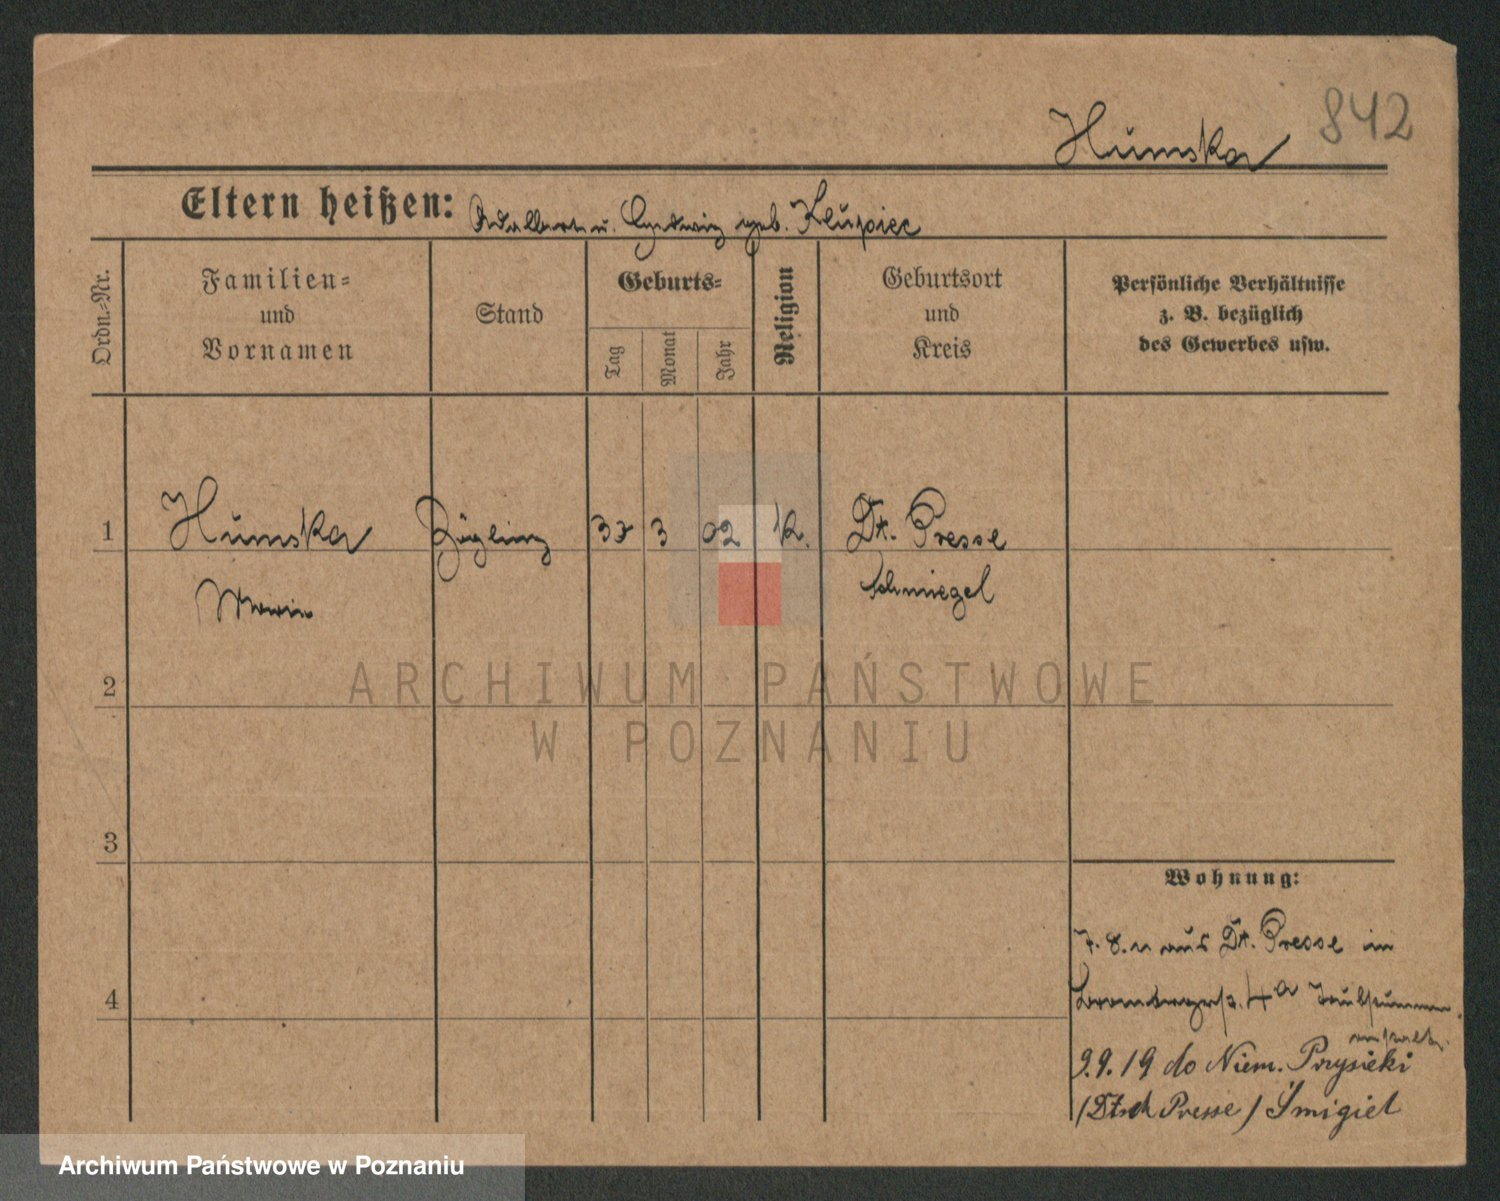 842
Humska
Eltern heißen: Adalbert u. Hedwig geb. Klupiec
Ordn.-Nr.
Familien-
und
Vornamen
Stand
Geburts-
Tag
Monat
Jahr
Religion
Geburtsort
und
Kreis
Persönliche Verhältnisse
z. B. bezüglich
des Gewerbes usw.
1
Humska Zögling 3 02 k. Dt. Presse
Schmiegel
2
3
4
Wohnung:
aus Dt. Presse in
4a Taubstummen
anstalt.
9.9.19 do Niem. Przysieki
/Dtsch Presse/ Śmigiel
ARCHIWUM PAŃSTWOWE
W POZNANIU
Archiwum Państwowe w Poznaniu